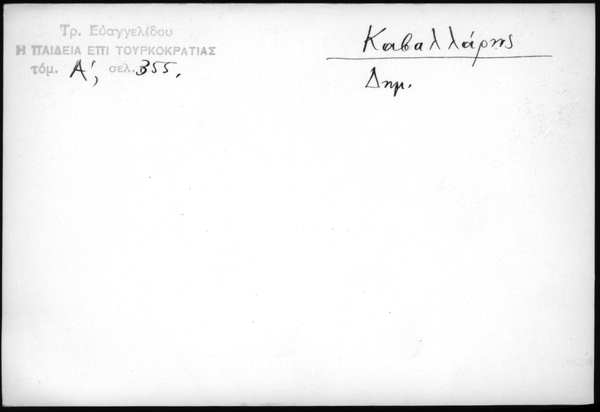 Τρ. Εὐαγγελίδου
Η ΠΑΙΔΕΙΑ ΕΠΙ ΤΟΥΡΚΟΚΡΑΤΙΑΣ
τόμ. Α', σελ. 355.
Καβαλλάρης
Δημ.